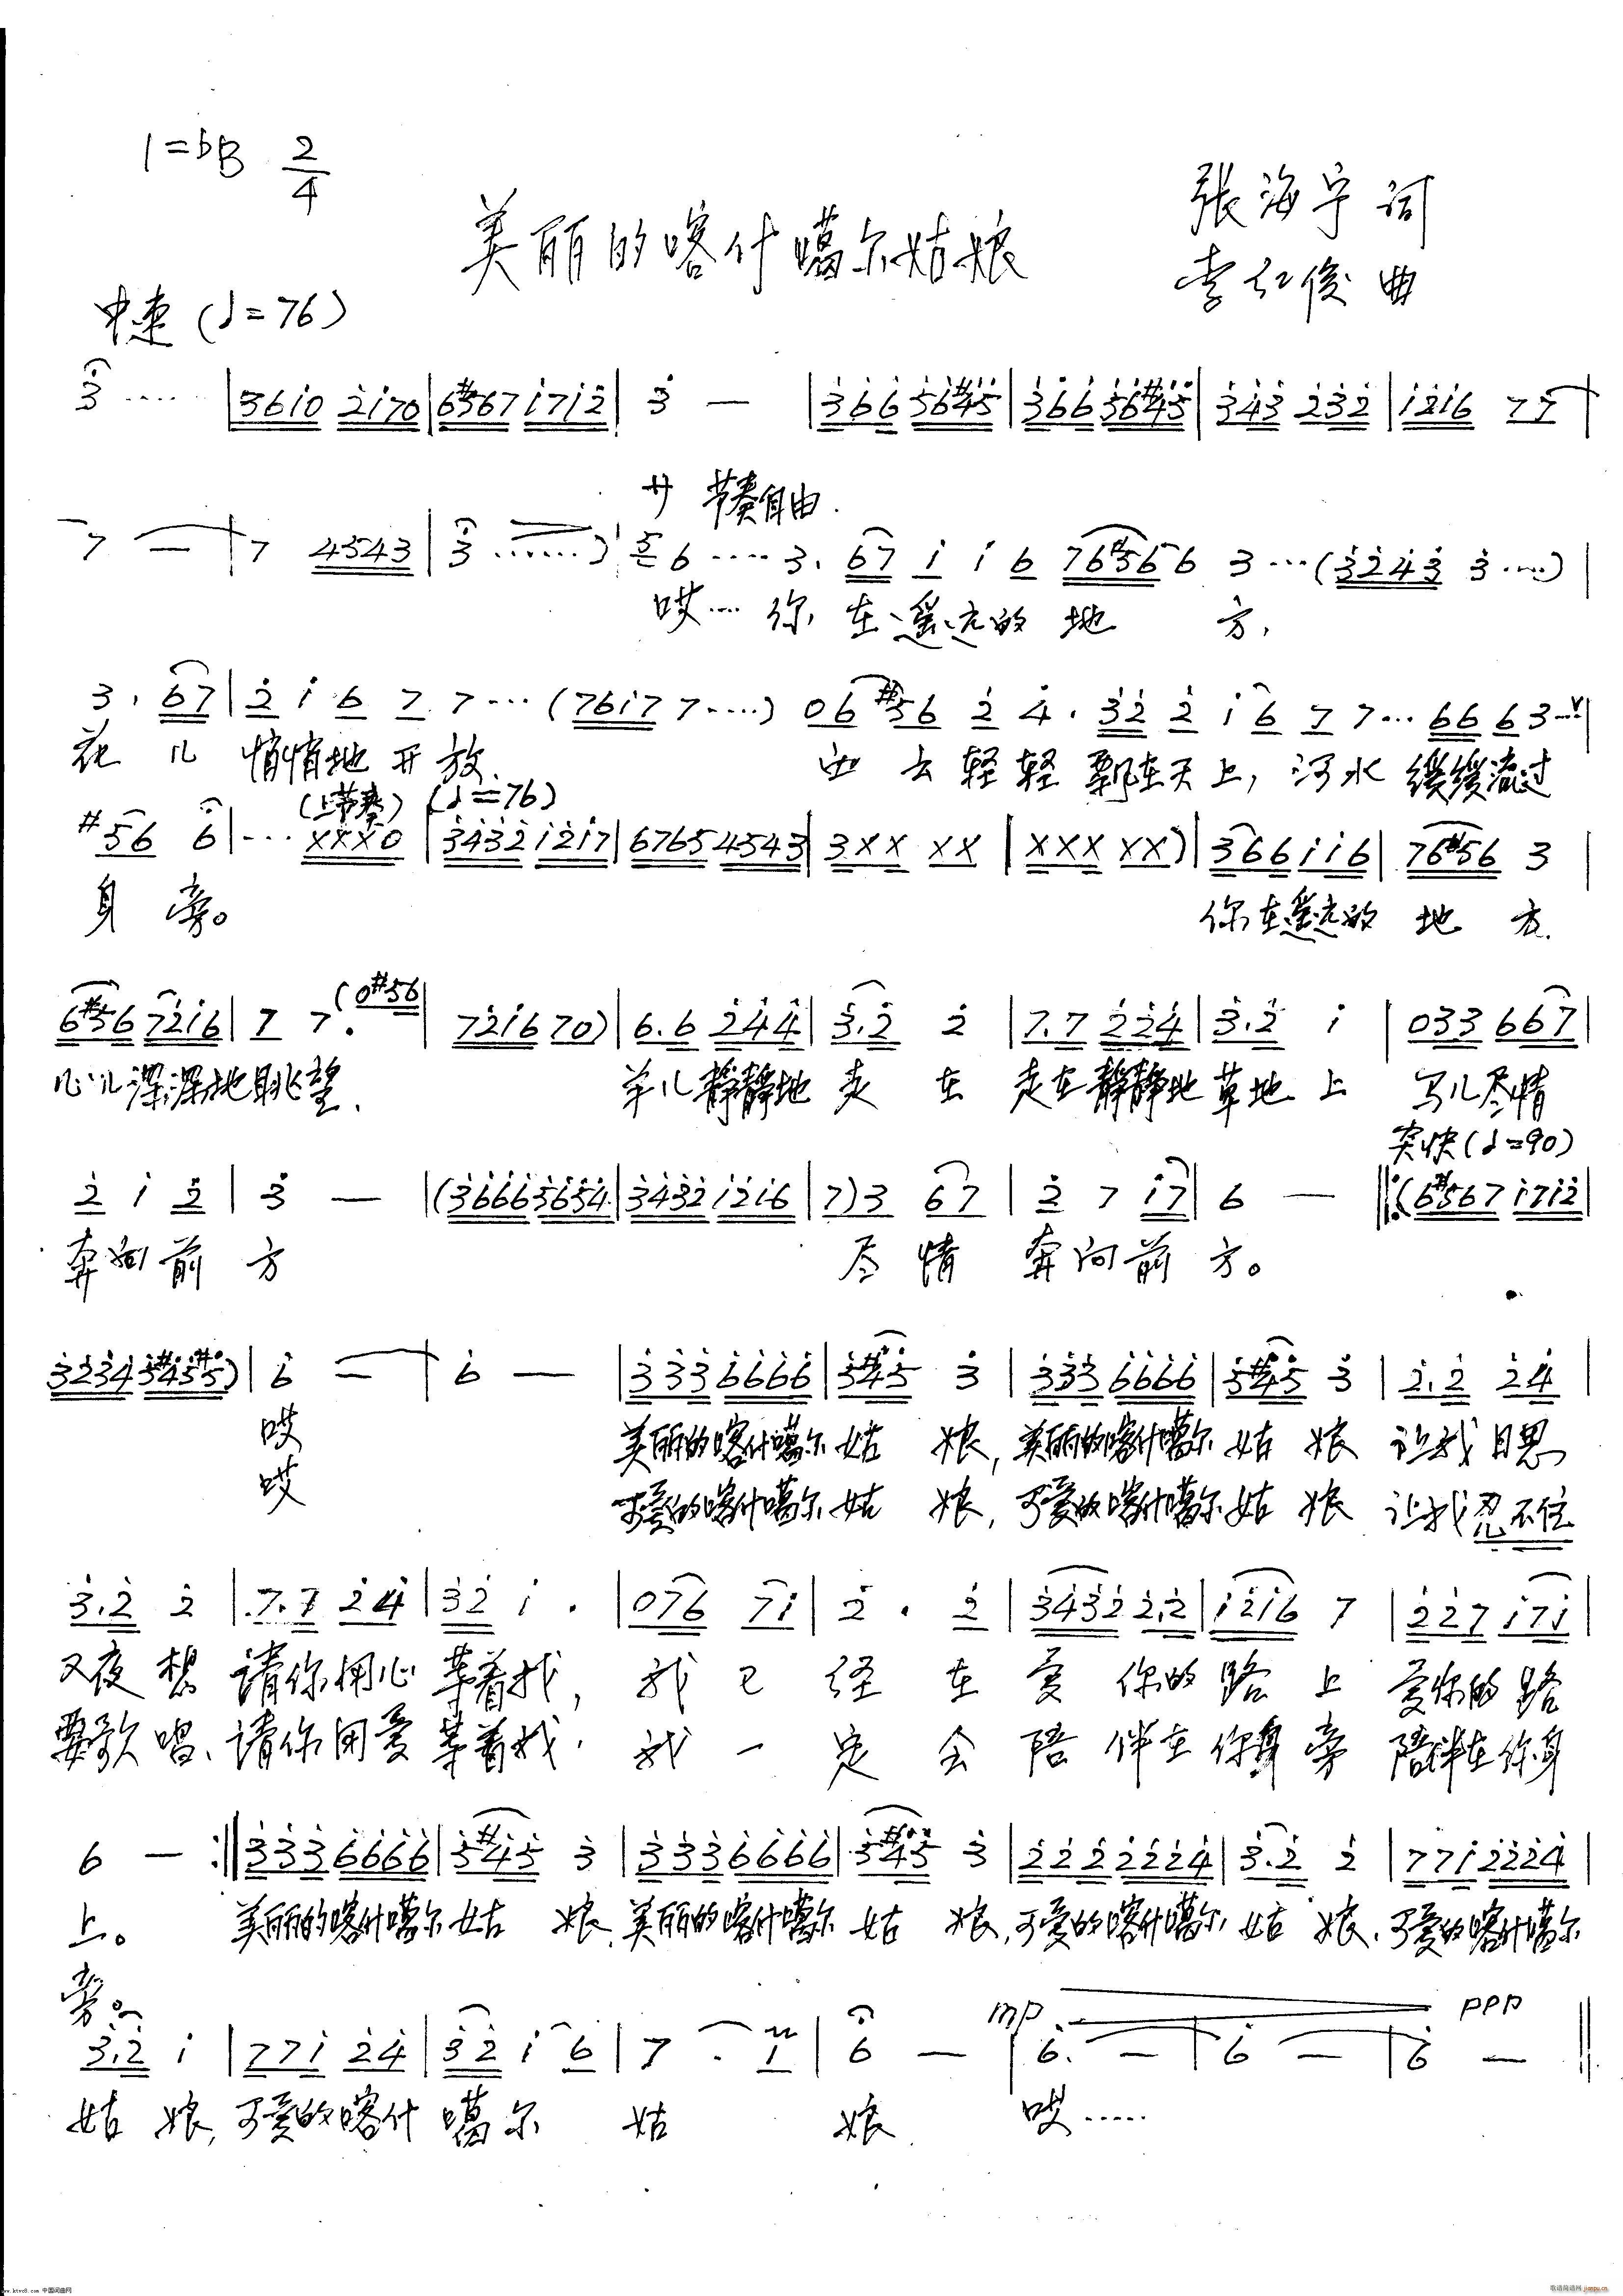 1=bB 2/4
美丽的喀什噶尔姑娘
张海宁 词
李红俊 曲
中速(♩=76)
3 ····· |3610 2170|6#567 1712| 3 — |366 56#45|366 56#45|343 232|1216 77|
廾 节奏自由.
7 — |7 4543|3 ······) 5 6 ···· 3. 67 1 1 6 76#566 3 ···(3243 3 ····)|
哎···· 你 在遥远的 地 方,
3. 67|2 1 6 7 7 ···(7617 7 ····) 06 #56 2 4. 32 2 1 6 7 7 ··· 66 63 ··v|
花 儿 悄悄地开放. 云轻轻飘在天上, 河水 缓缓流过
(上节奏) (♩=76)
#56 6|··· xxx0 |3432 1217|6765 4543|3xx xx |xxx xx)|366 116|76#56 3 |
身 旁。 你在遥远的 地 方.
6#56 7216|7 7.(0#56| 7216 70)|6.6 244|3.2 2 |7.7 224|3.2 1 |033 667|
心儿深深地眺望. 羊儿静静地 走 在 走在静静地草地 上 马儿尽情
突快(♩=90)
2 1 2 | 3 — |(3666 5654|3432 1216|7)3 67 |2 7 17|6 — ‖:(6#567 1712|
奔向前 方 尽 情 奔向前 方。
3234 5#45#5)|6 — |6 — |333 6666|5#45 3 |333 6666|5#45 3 |2.2 24 |
哎 美丽的喀什噶尔 姑 娘, 美丽的喀什噶尔 姑 娘 让我日思
哎 可爱的喀什噶尔 姑 娘, 可爱的喀什噶尔 姑 娘 让我忍不住
3.2 2 |7.7 24|32 1. |076 71|2 . 2 |3432 2.2|1216 7 |227 171|
又夜 想 请你用心 等着我, 我 已 经 在 爱 你的 路 上 爱你的 路
要歌 唱、请你用爱 等着我. 我 一 定 会 陪 伴在 你身 旁 陪伴在你身
6 — :‖333 6666|5#45 3 |333 6666|5#45 3 |222 2224|3.2 2 |771 2224|
上。 美丽的喀什噶尔 姑 娘, 美丽的喀什噶尔 姑 娘, 可爱的喀什噶尔 姑 娘, 可爱的喀什噶尔
旁。
mp ppp
3.2 1 |771 24|32 1 6|7 . 1 | 6 — |6. — |6 — |6 — ‖
姑 娘, 可爱的喀什 噶 尔 姑 娘 哎······
www.ktvc8.com 中国词曲网
歌谱简谱网 jianpu.cn